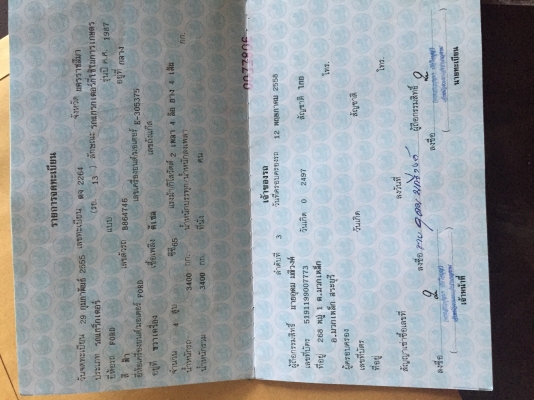 รายการจดทะเบียน
วันจดทะเบียน 29 กุมภาพันธ์ 2555 เลขทะเบียน ตจ 2264 จังหวัด นครราชสีมา
ประเภท รถแทร็กเตอร์ (รย. 13 ลักษณะ รถแทรกเตอร์ที่ใช้ในการเกษตร
ยี่ห้อรถ FORD แบบ รุ่นปี ค.ศ. 1987
สี ฟ้า เลขตัวรถ B864746 อยู่ที่ กลาง
ยี่ห้อเครื่องยนต์ FORD เลขเครื่องยนต์ E-305375
อยู่ที่ ขวาเครื่อง เชื้อเพลิง ดีเซล เลขถังแก๊ส
จำนวน 4 สูบ ซีซี 65 แรงม้า 2 เพลา 4 ล้อ ยาง 4 เส้น
น้ำหนักรถ 3400 กก. น้ำหนักบรรทุก/น้ำหนักลงเพลา กก.
น้ำหนักรวม 3400 กก. ที่นั่ง คน
เจ้าของรถ
ลำดับที่ 3 วันที่ครอบครองรถ 12 พฤษภาคม 2558
ผู้ถือกรรมสิทธิ์ นายอุดม
เลขที่บัตร 5191199007773 วันเกิด 0 2497 สัญชาติ ไทย
ที่อยู่ 268 หมู่ 1 ต.มวกเหล็ก
อ.มวกเหล็ก สระบุรี โทร.
ผู้ครอบครอง
เลขที่บัตร วันเกิด สัญชาติ
ที่อยู่ โทร.
สัญญาเช่าซื้อเลขที่ ลงวันที่
ลงชื่อ ผู้ถือกรรมสิทธิ์
ลงชื่อ ลงชื่อ
เจ้าหน้าที่ นายทะเบียน